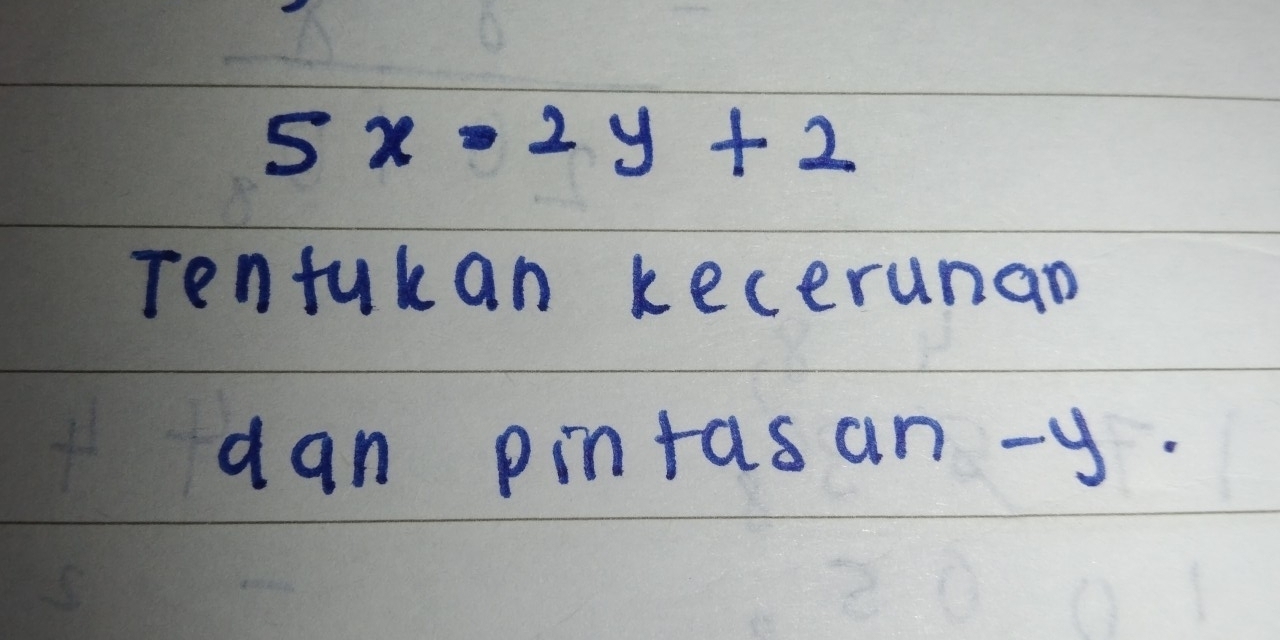 5x = 2y + 2
Tentukan kecerunan
dan pintasan -y.